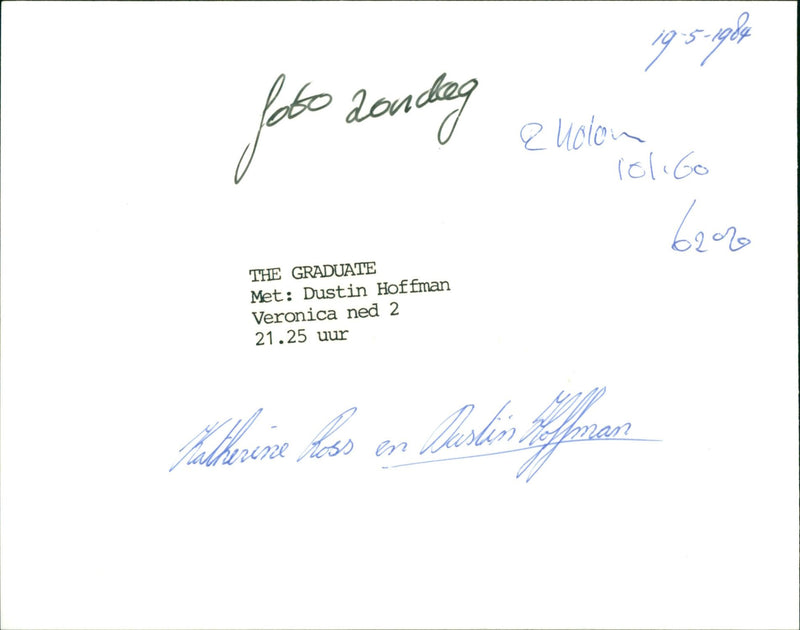 19-5-1984
foto zondag
2 kolom
101.60
62%
THE GRADUATE
Met: Dustin Hoffman
Veronica ned 2
21.25 uur
Katherine Ross en Dustin Hoffman